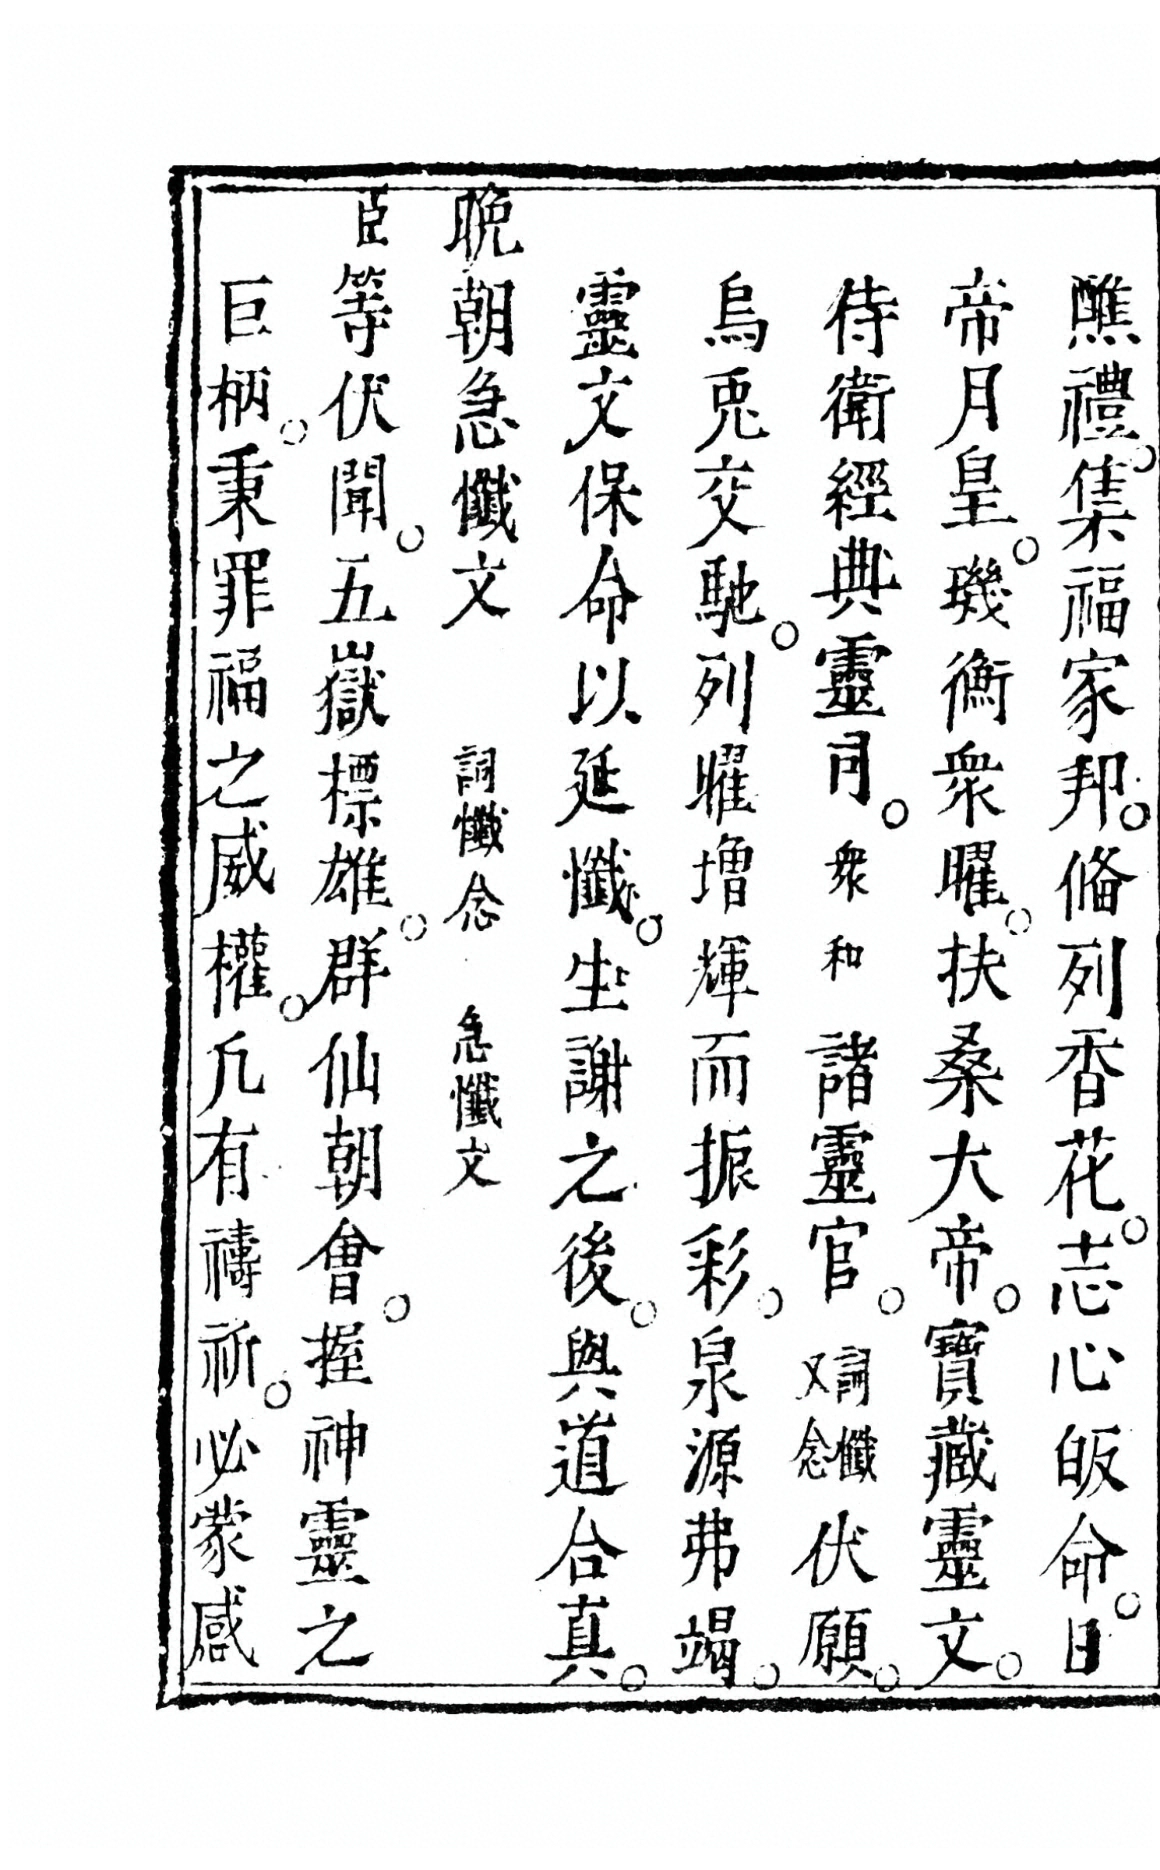 醮禮。集福家邦。俻列香花。志心皈命。日
帝月皇。璣衡衆曜。扶桑大帝。寶藏靈文。
侍衛經典靈司。衆和 諸靈官。詞懺又念伏願。
烏兎交馳。列曜增輝而振彩。泉源弗竭。
靈文保命以延懺。生謝之後。與道合真。
晩朝急懺文 詞懺念 急懺文
臣等伏聞。五嶽標雄。群仙朝會。握神靈之
巨柄。秉罪福之威權。凡有禱祈。必蒙感